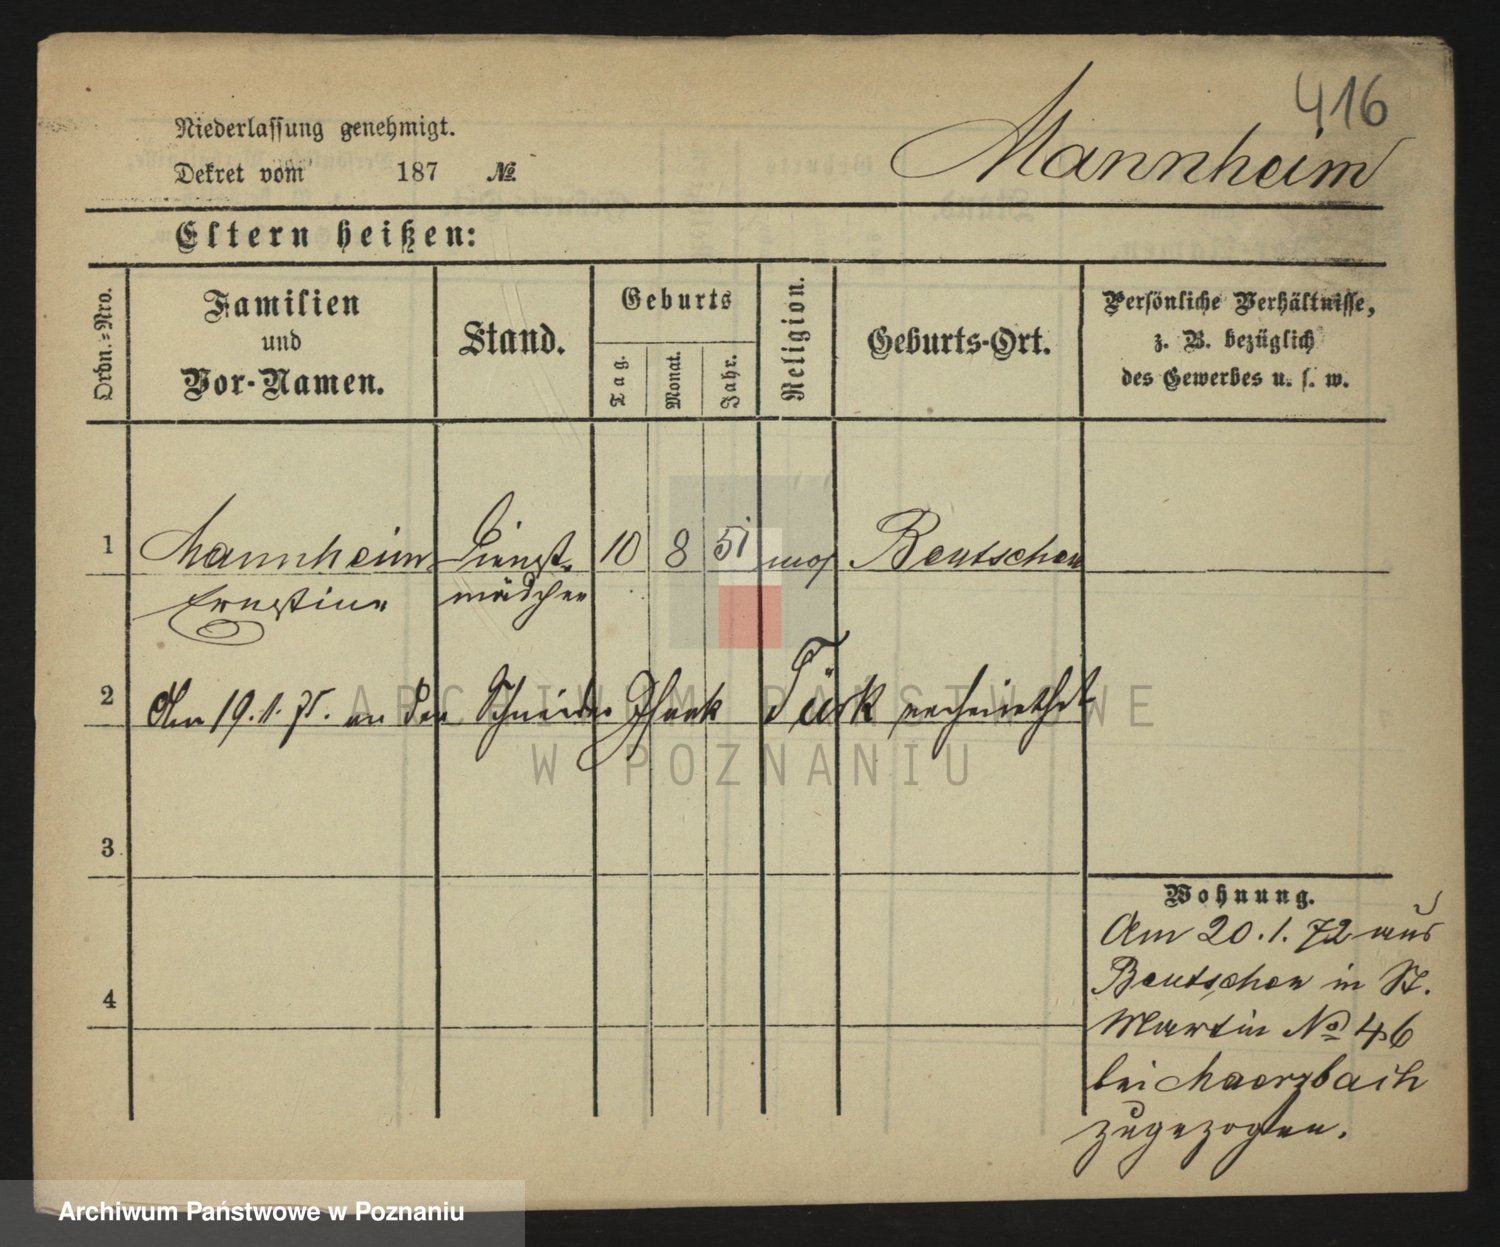 416
Mannheim
Niederlassung genehmigt.
Dekret vom 187 №
Eltern heißen:
Ordn.-Nro.
Familien
und
Vor-Namen.
Stand.
Geburts
Tag.
Monat.
Jahr.
Religion.
Geburts-Ort.
Persönliche Verhältnisse,
z. B. bezüglich
des Gewerbes u. s. w.
1 Mannheim Dienst- 10 8 51 mos Bentschen
Ernestine mädchen
2 Am 19.1.75. an den Schneider Türk verheirathet
ARCHIWUM PAŃSTWOWE
W POZNANIU
3
4
Wohnung.
Am 20.1.72 aus
Bentschen in St.
Martin № 46
bei Maerzbach
zugezogen.
Archiwum Państwowe w Poznaniu